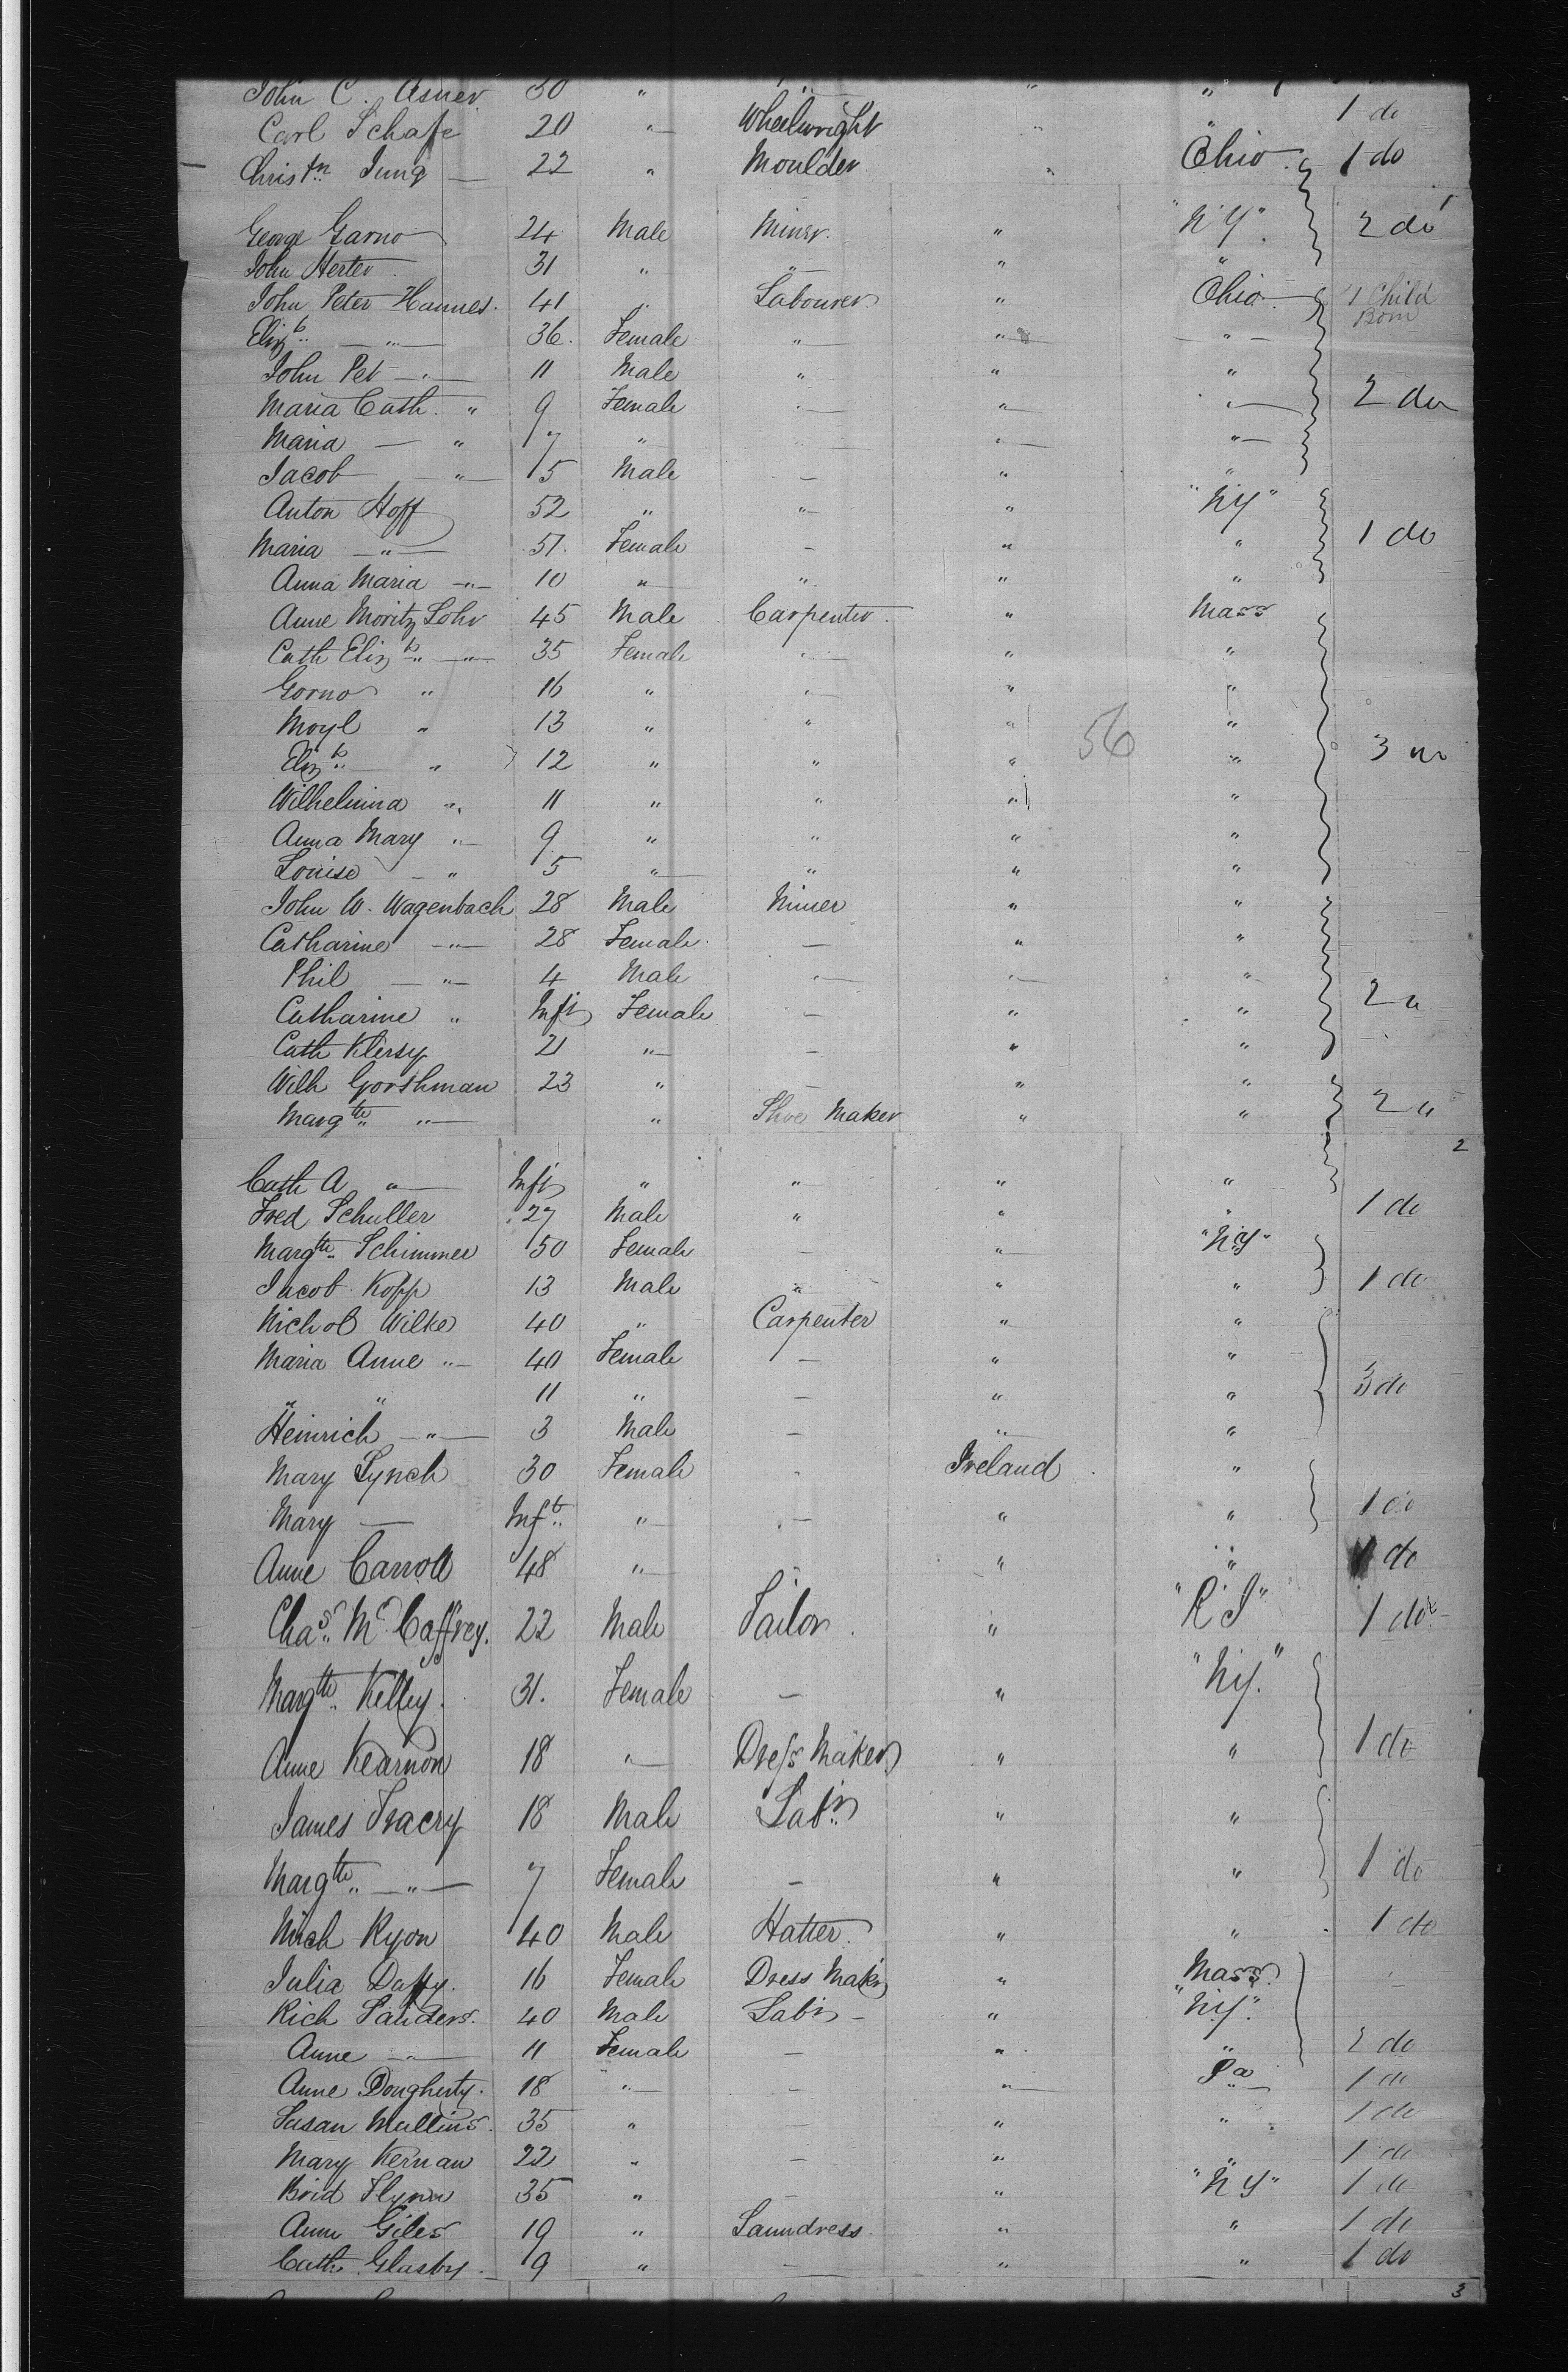 John C. Asner 30 " " " "
Carl Schafe 20 " Wheelwright " " 1 do
Christn Jung 22 " Moulder " Ohio 1 do
George Garno 24 Male Miner " "NY" 2 do 1
John Herter 31 " " " "
John Peter Hannes 41 " Labourer " Ohio 1 Child Born
Elizth " 36 Female " " "
John Pet " 11 Male " " "
Maria Cath " 9 Female " " " 2 do
Maria " 7 " " "
Jacob " 5 Male - " "
Anton Hoff 52 " " " "NY"
Maria " 51 Female - " " 1 do
Anna Maria " 10 " " " "
Anne Moritz Lohr 45 Male Carpenter " Mass
Cath Elizth " 35 Female " " "
Gorno " 16 " " " "
Moyl " 13 " " " 56 "
Elizth " 12 " " " " 3 "
Wilhelmina " 11 " " " "
Anna Mary " 9 " " " "
Louise " 5 " " " "
John W. Wagenbach 28 Male Miner " "
Catharine " 28 Female - " "
Phil " 4 Male " " "
Catharine " Inft Female - " " 2 "
Cath Klersy 21 " - " "
Wilh Gorthman 23 " - " "
Margth " " Shoe Maker " " 2 "
2
Cath A " Inft " " " "
Fred Schuller 27 Male " " " 1 do
Margth Schimmer 50 Female - " "NY"
Jacob Kopp 13 Male " " " 1 do
Nichol Wilke 40 " Carpenter " "
Maria Anne " 40 Female - " "
" " 11 " - " " 3 do
Heinrich " 3 Male - " "
Mary Lynch 30 Female - Ireland "
Mary — Inft " - " " 1 do
Anne Carroll 48 " - " " 1 do
Chas McCaffrey 22 Male Tailor " "R I" 1 do
Margth Kelley 31 Female - " "NY"
Anne Kearnon 18 " Dress Maker " " 1 do
James Tracey 18 Male Labr " "
Margth " 7 Female - " " 1 do
Mich Ryon 40 Male Hatter " " 1 do
Julia Duffy 16 Female Dress Makr " Mass
Rich Sanders 40 Male Labr - " "NY"
Anne " 11 Female - " " 2 do
Anne Dougherty 18 " - " Pa 1 do
Susan Mullins 35 " - " " 1 do
Mary Kernan 22 " - " " 1 do
Brid Flynn 35 " - " "NY" 1 do
Anne Giles 19 " Laundress " " 1 do
Cath Glasby 19 " - " " 1 do
3